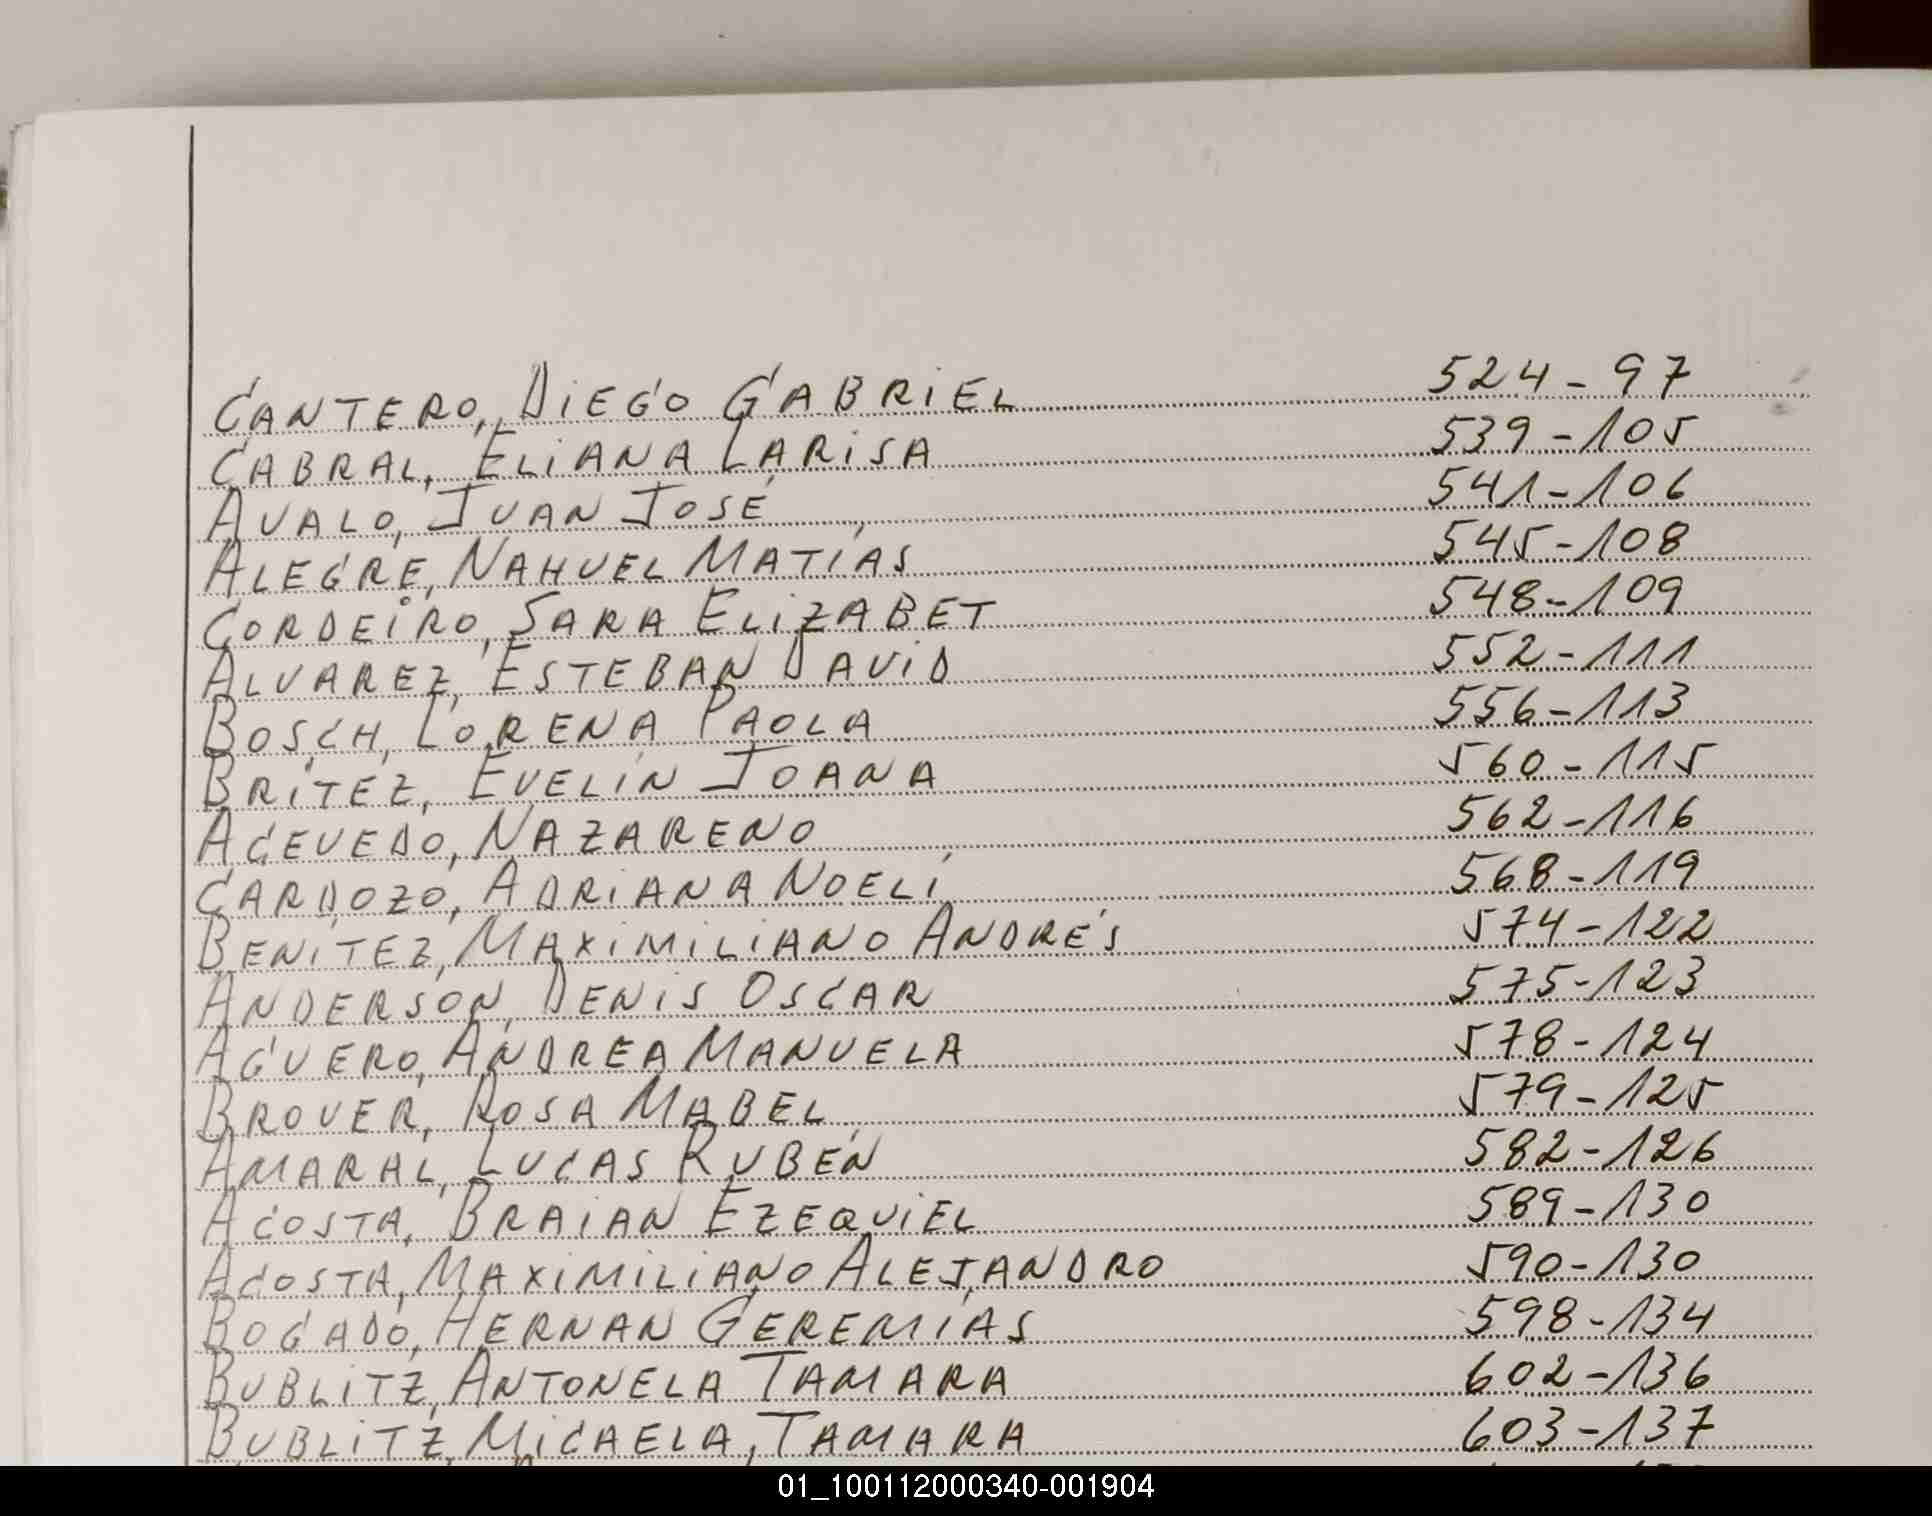 CANTERO, DIEGO GABRIEL 524-97
CABRAL, ELIANA LARISA 539-105
AVALO, JUAN JOSÉ 541-106
ALEGRE, NAHUEL MATÍAS 545-108
CORDEIRO, SARA ELIZABET 548-109
ALVAREZ, ESTEBAN DAVID 552-111
BOSCH, LORENA PAOLA 556-113
BRÍTEZ, EVELÍN JOANA 560-115
ACEVEDO, NAZARENO 562-116
CARDOZO, ADRIANA NOELÍ 568-119
BENÍTEZ, MAXIMILIANO ANDRÉS 574-122
ANDERSON, DENIS OSCAR 575-123
AGUERO, ANDREA MANUELA 578-124
BROVER, ROSA MABEL 579-125
AMARAL, LUCAS RUBÉN 582-126
ACOSTA, BRAIAN EZEQUIEL 589-130
ACOSTA, MAXIMILIANO ALEJANDRO 590-130
BOGADO, HERNAN GEREMÍAS 598-134
BUBLITZ, ANTONELA TAMARA 602-136
BUBLITZ, MICAELA, TAMARA 603-137
01_100112000340-001904